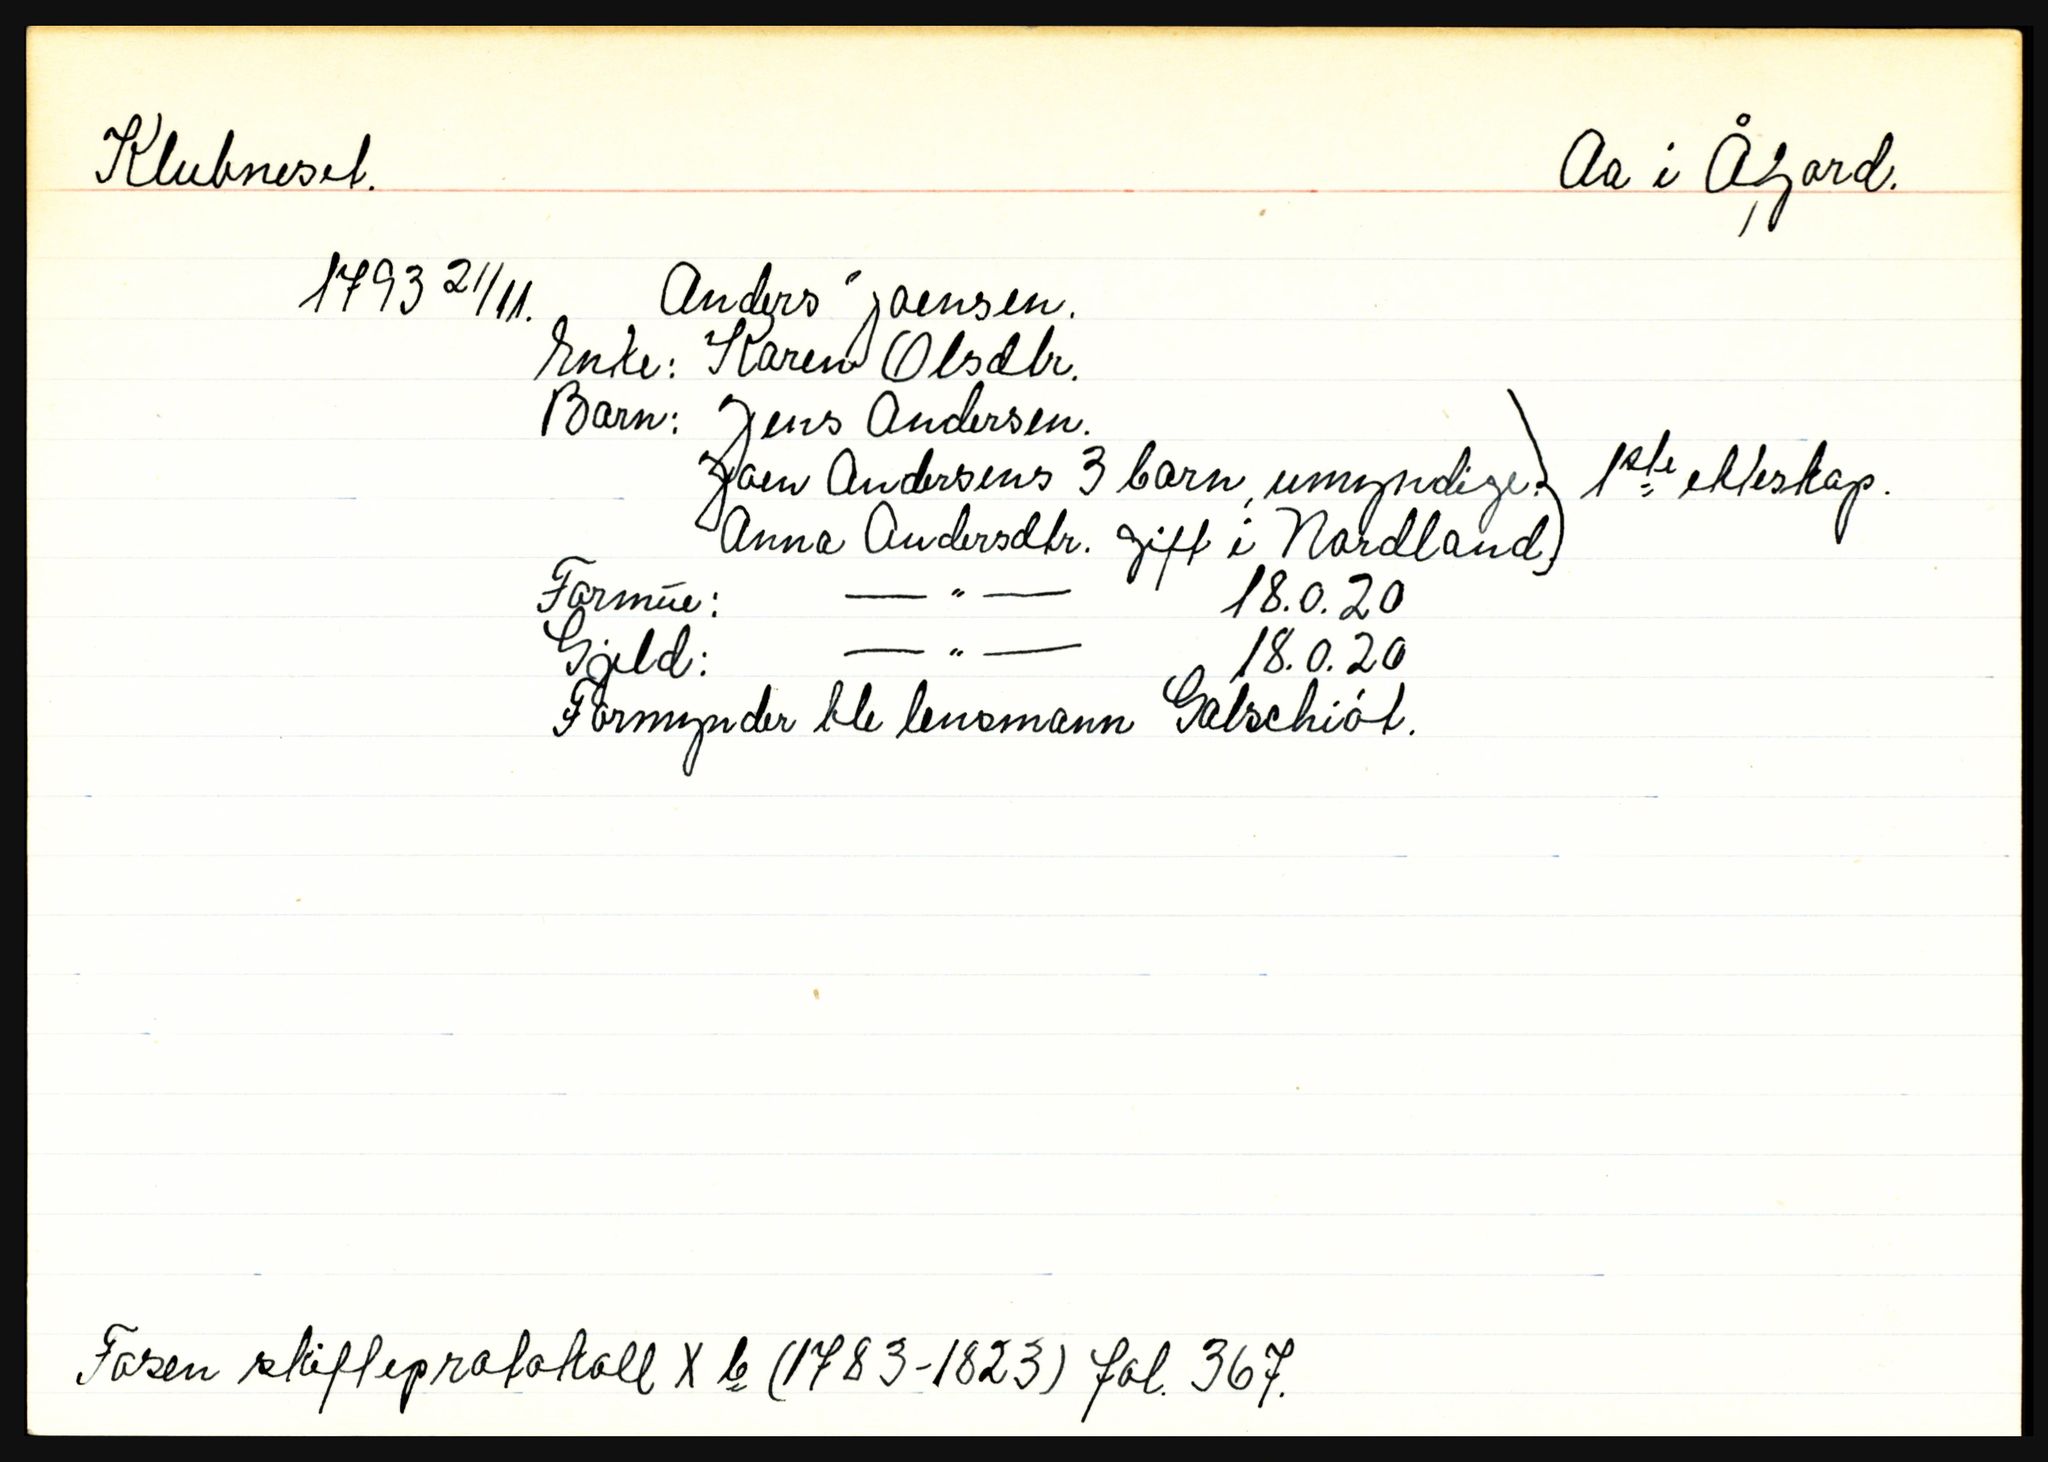 Klubneset. Aa i Åfjord.
1793 21/11. Anders Joensen.
Enke: Karen Olsdtr.
Barn: Jens Andersen.
Joen Andersens 3 barn, umyndige. 1ste ekteskap.
Anna Andersdtr. gift i Nordland
Formüe: — " — 18.0.20
Gjeld: — " — 18.0.20
Formynder ble lensmann Galschiót.
Fosen skifteprotokoll X b (1783-1823) fol. 367.